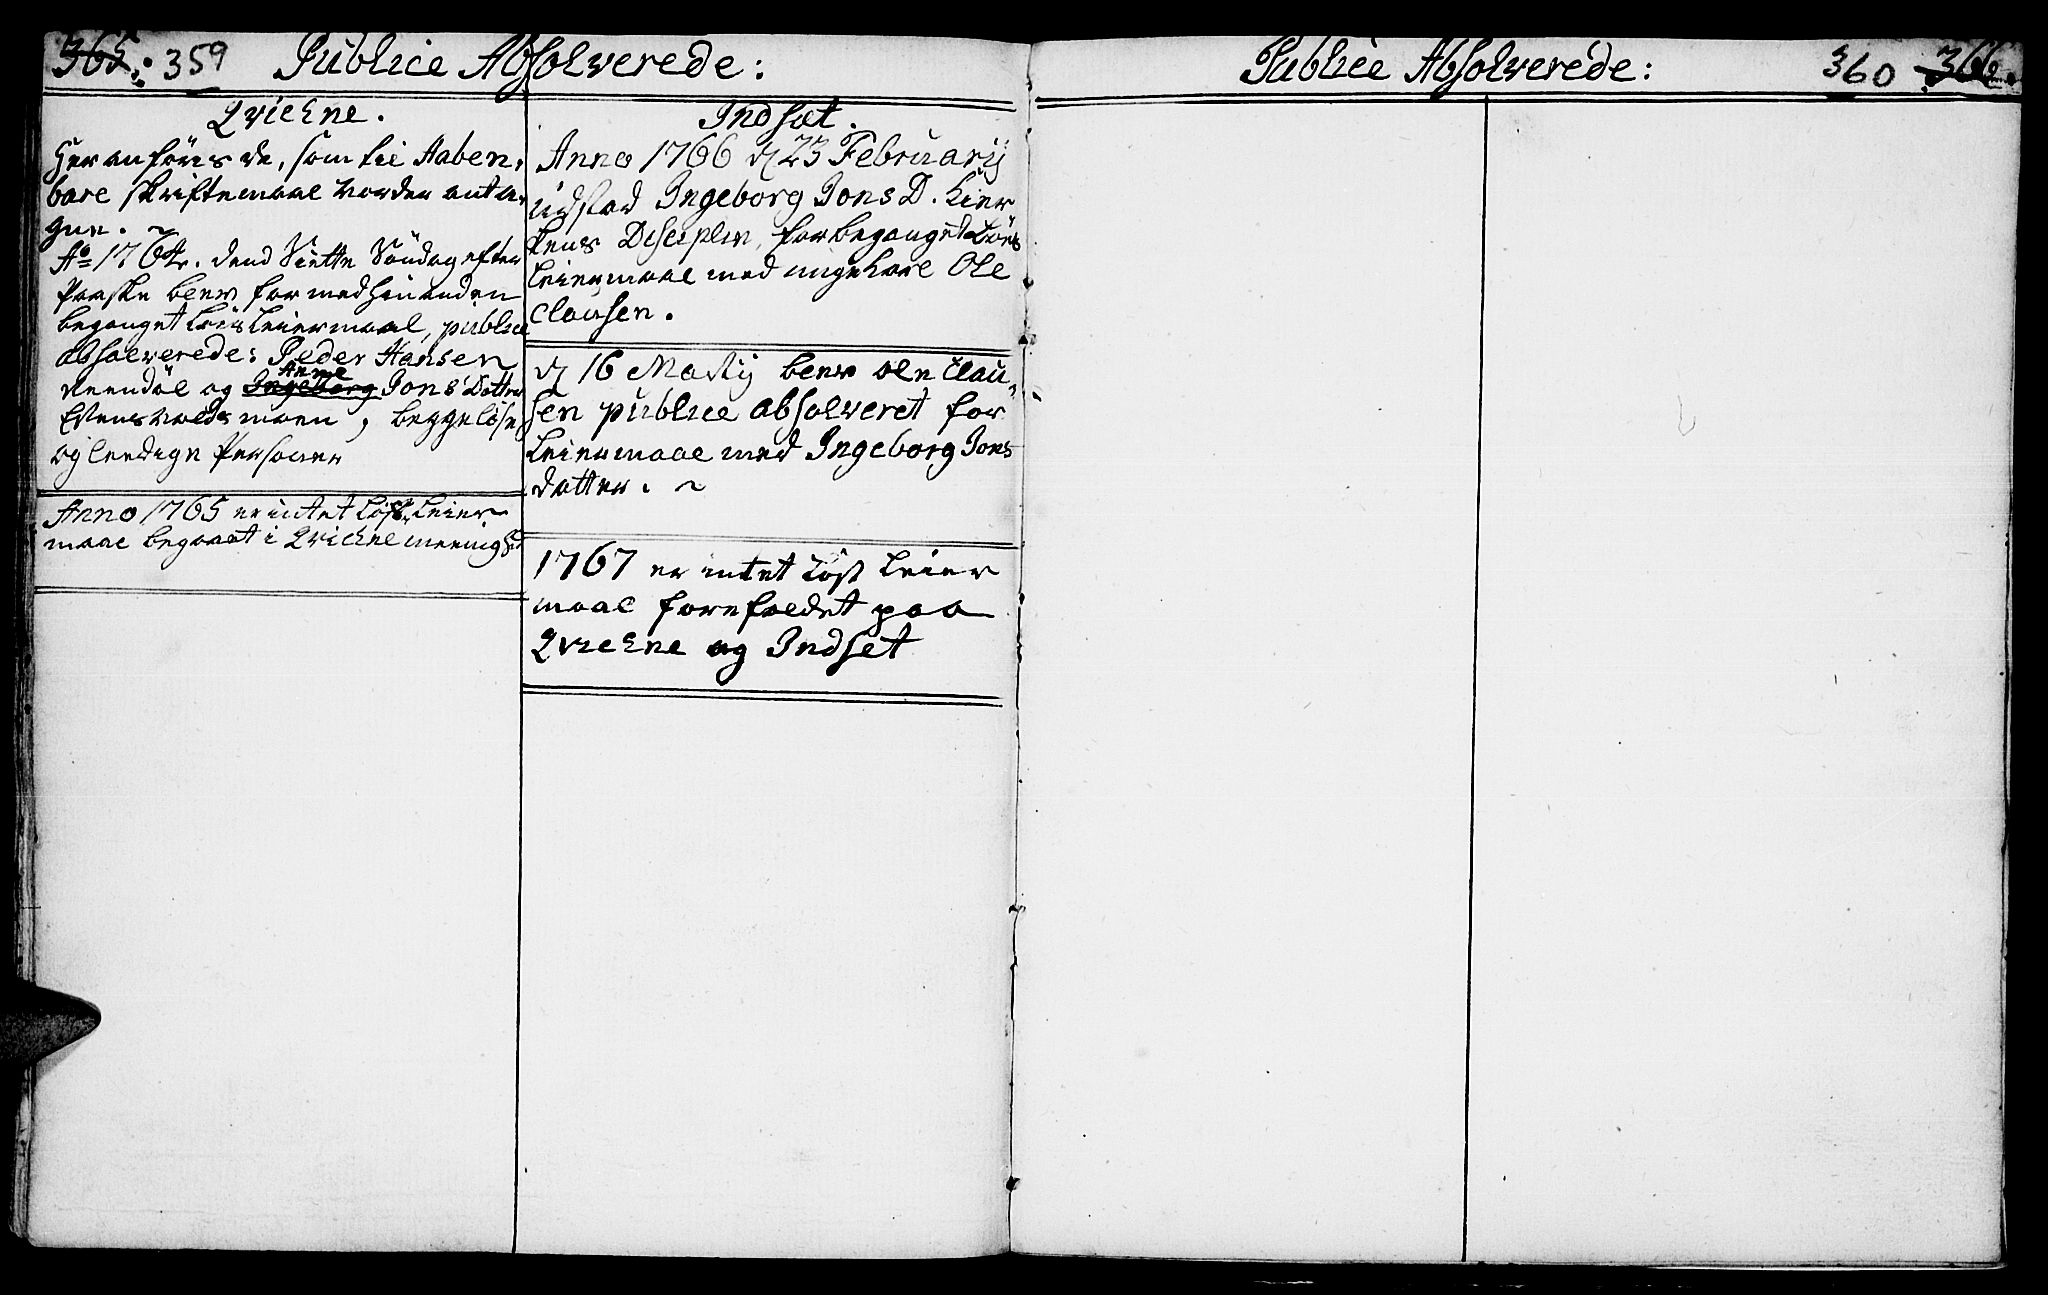 365. 359 Publice Absolverede:
Qvickne.
Her anföres de, som til Aaben-
bare skriftemaal vorder antag-
gne.
Ao 1764. dend Siette Söndag efter
Paaske blev for med hinanden
begaaget Löst Leiermaal, publice
absolverede: Peder Hansen
og Ingeborg Anne Jons Datter
moen, begge löse
og leedige Personer
Anno 1765 er intet Löst Leier
maal begaaet i Qvickne meenighed
Indset.
Anno 1766 d 23 Februarij
udstod Ingeborg Jons D. Kier
kens Disciplin, for begaaget Löst
Leiermaal med ungekarl Ole
Clausen.
d 16 Martij blev Ole Clau-
sen publice absolveret for
Leiermaal med Ingeborg Jons
datter.
1767 er intet Löst Leier
maal forefaldet paa
Qvickne og Indset
Publice Absolverede: 360 366